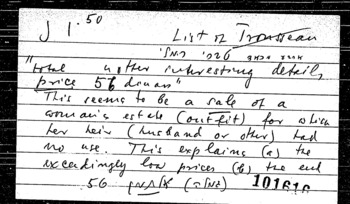 J 1.50
List of Trousseau
"total & other interesting details,
price 56 dinars"
This seems to be a sale of a
woman's estate (outfit) for which
her heir (husband or other) had
no use. This explains (a) the
exceedingly low prices (b) the end
56 101616